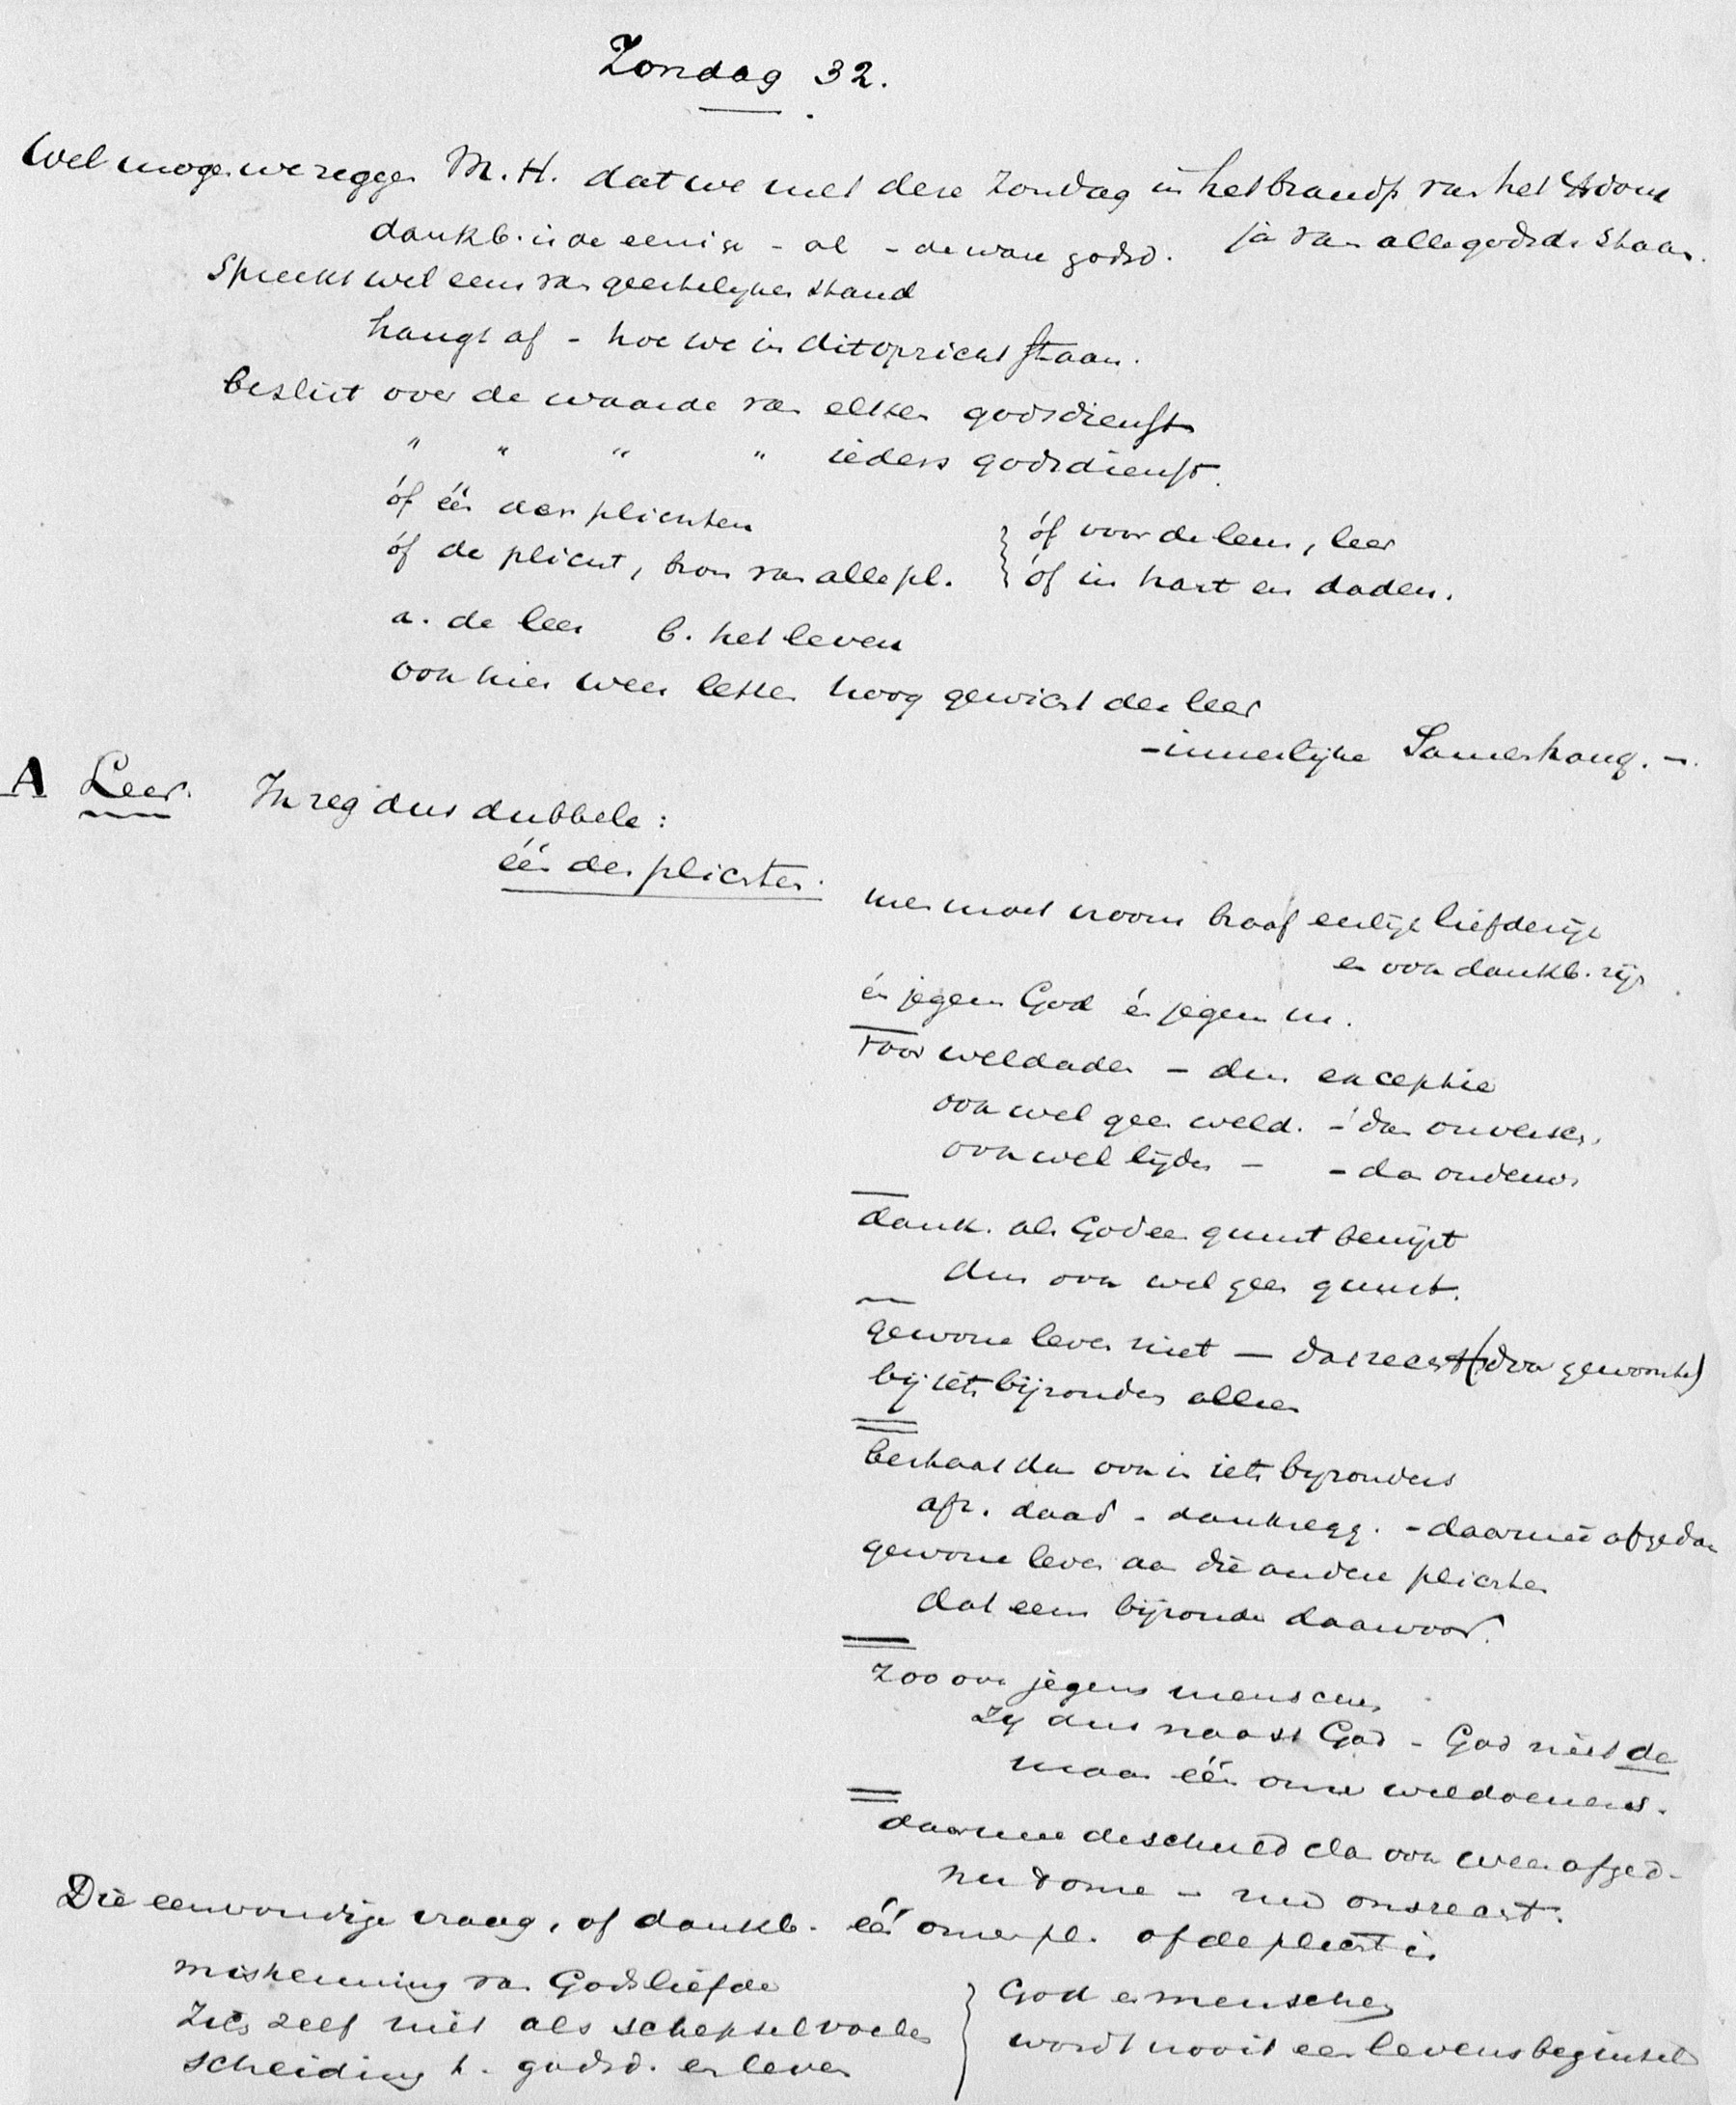 Zondag 32.
Wel mogen we zeggen M. H. dat we met deze Zondag in het brandp van het Xdom
ja van alle godsd. staan.
dankb. is de eenige - al - de ware godsd.
Spreekt wel eens van geestelijken stand
hangt af - hoe we in dit opzicht staan.
beslist over de waarde van elken godsdienst
" " " " ieders godsdienst.
óf één der plichten
óf de plicht, bron van alle pl. } óf voor de leus, leer
óf in hart en daden.
a. de leer b. het leven
ook hier weer letten hoog gewicht der leer
- innerlijke Samenhang. -
A Leer. Ik zeg dus dubbele:
één der plichten.
men moet vroom braaf eerlijk liefderijk
en ook dankb. zijn
én jegens God én jegens m.
Voor weldaden - dus exceptie
ook wel geen weld. - dan onversch.
ook wel lijden - - dan
dank. als God een gunst bewijst
dus ook wel geen gunst.
gewone leven niet — dat recht (door gewoonte)
bij iets bijzonders alleen
bestaat dan ook in iets bijzonders
afz. daad - dankzegg. - daarmeê afgedaan
gewone leven aan die andere plichten
dat eens bijzonder daarvoor.
Zoo ook jegens menschen
Zij dus naast God - God niet de
maar één onzer weldoeners.
daarmee de schuld dan ook weer afged.
nu t onze - nu ons recht.
Die eenvoudige vraag, of dankb. één onzer pl. of de plicht is
miskenning van Gods liefde
Zich zelf niet als schepsel voelen
scheiding t. godsd. en leven } God en menschen
wordt nooit een levensbeginsel